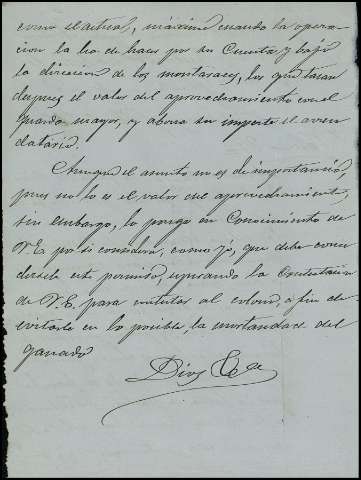 como el actual, máxime cuando la opera-
cion la ha de hacer por su cuenta y bajo
la direccion de los montaraces, los que tasan
despues el valor del aprovechamiento con el
guarda mayor, y abona su importe el arren
datario.
Aunque el asunto no es de importancia,
pues no lo es el valor del aprovechamiento,
sin embargo, lo pongo en conocimiento de
V.E. por si considera, como yó, que debe conce
dersele este permiso, esperando la contestacion
de V.E. para contestar al colono, a fin de
evitarle en lo posible, la mortandad del
ganado
Dios